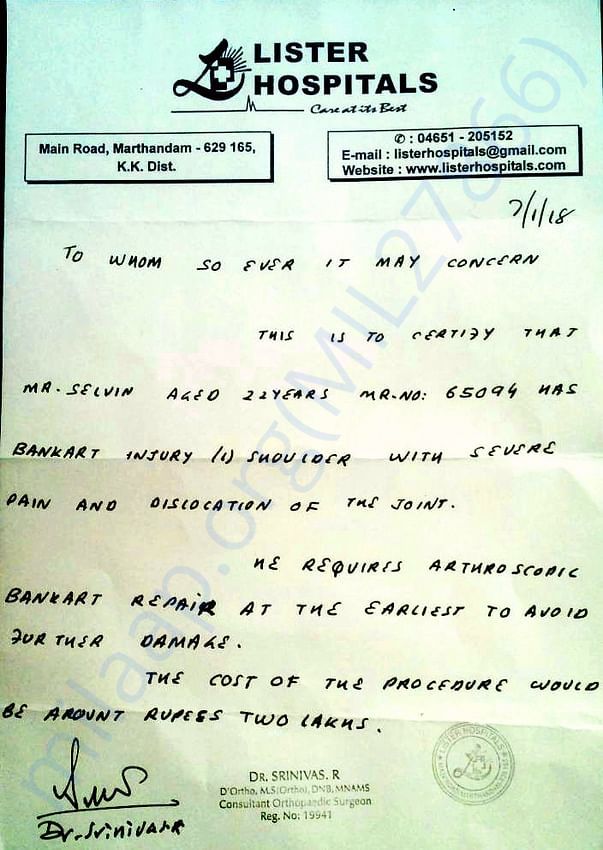 LISTER
HOSPITALS
Care at its Best
Main Road, Marthandam - 629 165,
K.K. Dist.
✆ : 04651 - 205152
E-mail : listerhospitals@gmail.com
Website : www.listerhospitals.com
7/1/18
TO WHOM SO EVER IT MAY CONCERN
THIS IS TO CERTIFY THAT
MR. SELVIN AGED 22YEARS MR.NO: 65094 HAS
BANKART INJURY (L) SHOULDER WITH SEVERE
PAIN AND DISLOCATION OF THE JOINT.
HE REQUIRES ARTHROSCOPIC
BANKART REPAIR AT THE EARLIEST TO AVOID
FURTHER DAMAGE.
THE COST OF THE PROCEDURE WOULD
BE AROUNT RUPEES TWO LAKHS.
DR. SRINIVAS. R
D'Ortho, M.S(Ortho), DNB, MNAMS
Consultant Orthopaedic Surgeon
Reg. No: 19941
Dr. Srinivas R
LISTER HOSPITALS
milaap.org(MIL27866)